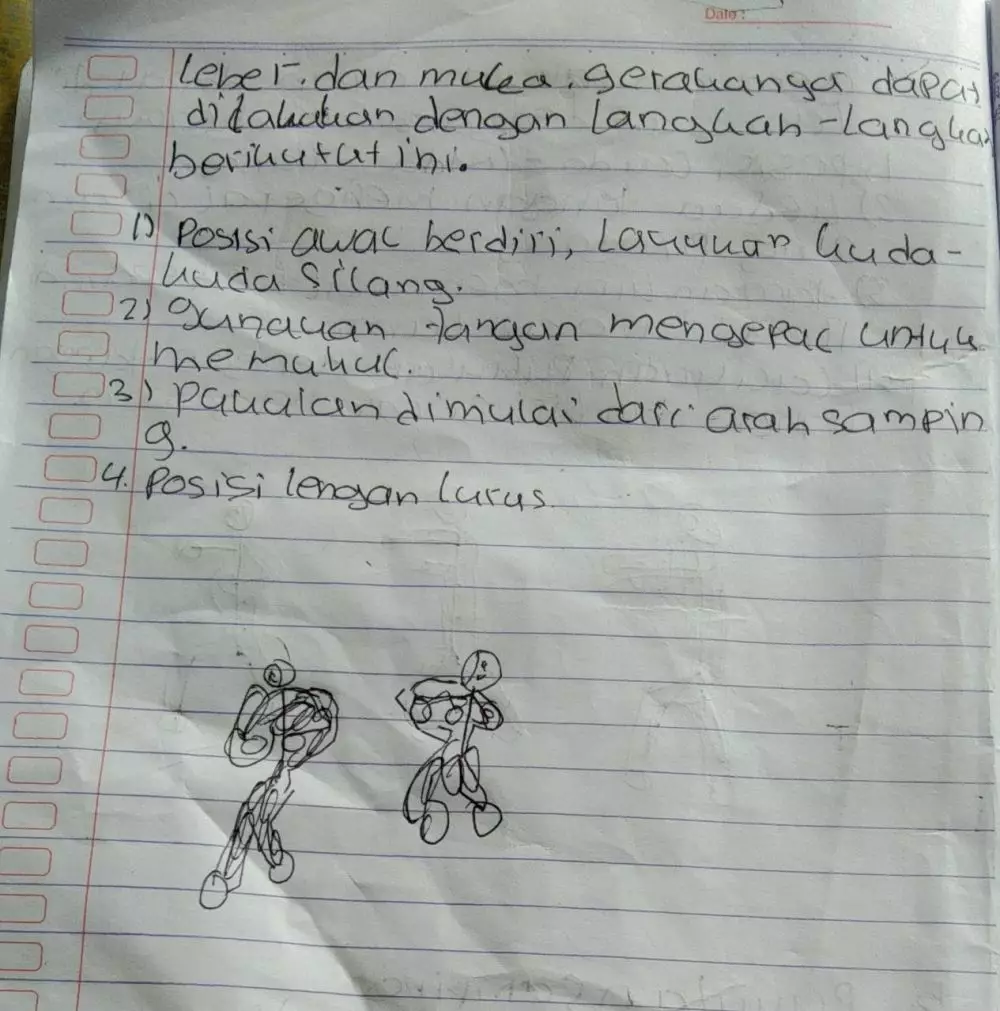 Date:
leher. dan muka. gerakanya dapat
dilakukan dengan langkah-langka
berikutut ini.
1) Posisi awal berdiri, Lakukan kuda-
kuda silang.
2) gunakan tangan mengepal untuk
memukul.
3) Pukulan dimulai dari arah sampin
g.
4. Posisi lengan lurus